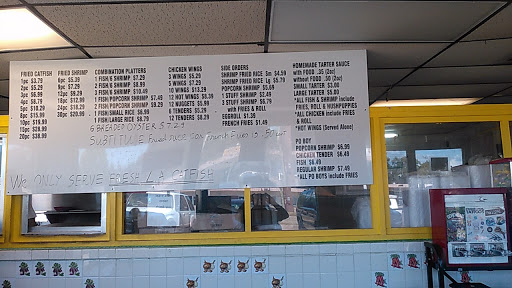 FRIED CATFISH
1pc $3.79
2pc $5.79
3pc $7.29
4pc $8.79
5pc $10.29
10pc $19.59
15pc $28.99
20pc $38.99
FRIED SHRIMP
6pc $5.39
8pc $6.79
10pc $7.99
12pc $8.99
18pc $12.99
24pc $16.99
30pc $20.99
COMBINATION PLATTERS
1 FISH/6 SHRIMP $7.29
2 FISH/6 SHRIMP $8.99
3 FISH/6 SHRIMP $10.49
1 FISH/POPCORN SHRIMP $7.49
2 FISH/POPCORN SHRIMP $9.29
1 FISH/SMALL RICE $6.99
1 FISH/LARGE RICE $8.79
6 BREADED OYSTER $7.29
SUBSTITUTE FRIED RICE FOR FRENCH FRIES IS
CHICKEN WINGS
3 WINGS $5.29
5 WINGS $7.29
10 WINGS $13.29
12 HOT WINGS $8.39
12 NUGGETS $5.99
6 TENDERS $5.99
8 TENDERS $7.29
SIDE ORDERS
SHRIMP FRIED RICE sm $4.59
SHRIMP FRIED RICE lg $5.79
POPCORN SHRIMP $5.99
1 STUFF SHRIMP $3.49
2 STUFF SHRIMP $4.49
3 STUFF SHRIMP $6.79
with FRIES & ROLL
EGGROLL $1.39
FRENCH FRIES $1.49
HOMEMADE TARTER SAUCE
with FOOD .35 (2oz)
without FOOD .50 (2oz)
SMALL TARTER $3.00
LARGE TARTER $5.00
*ALL FISH & SHRIMP include
FRIES, ROLL & HUSHPUPPIES
*ALL CHICKEN include FRIES
& ROLL
*HOT WINGS (Served Alone)
PO BOY
POPCORN SHRIMP $6.99
CHICKEN TENDER $6.49
FISH $6.49
REGULAR SHRIMP $7.49
*ALL PO BOYS include FRIES
We ONLY SERVE FRESH LA CATFISH